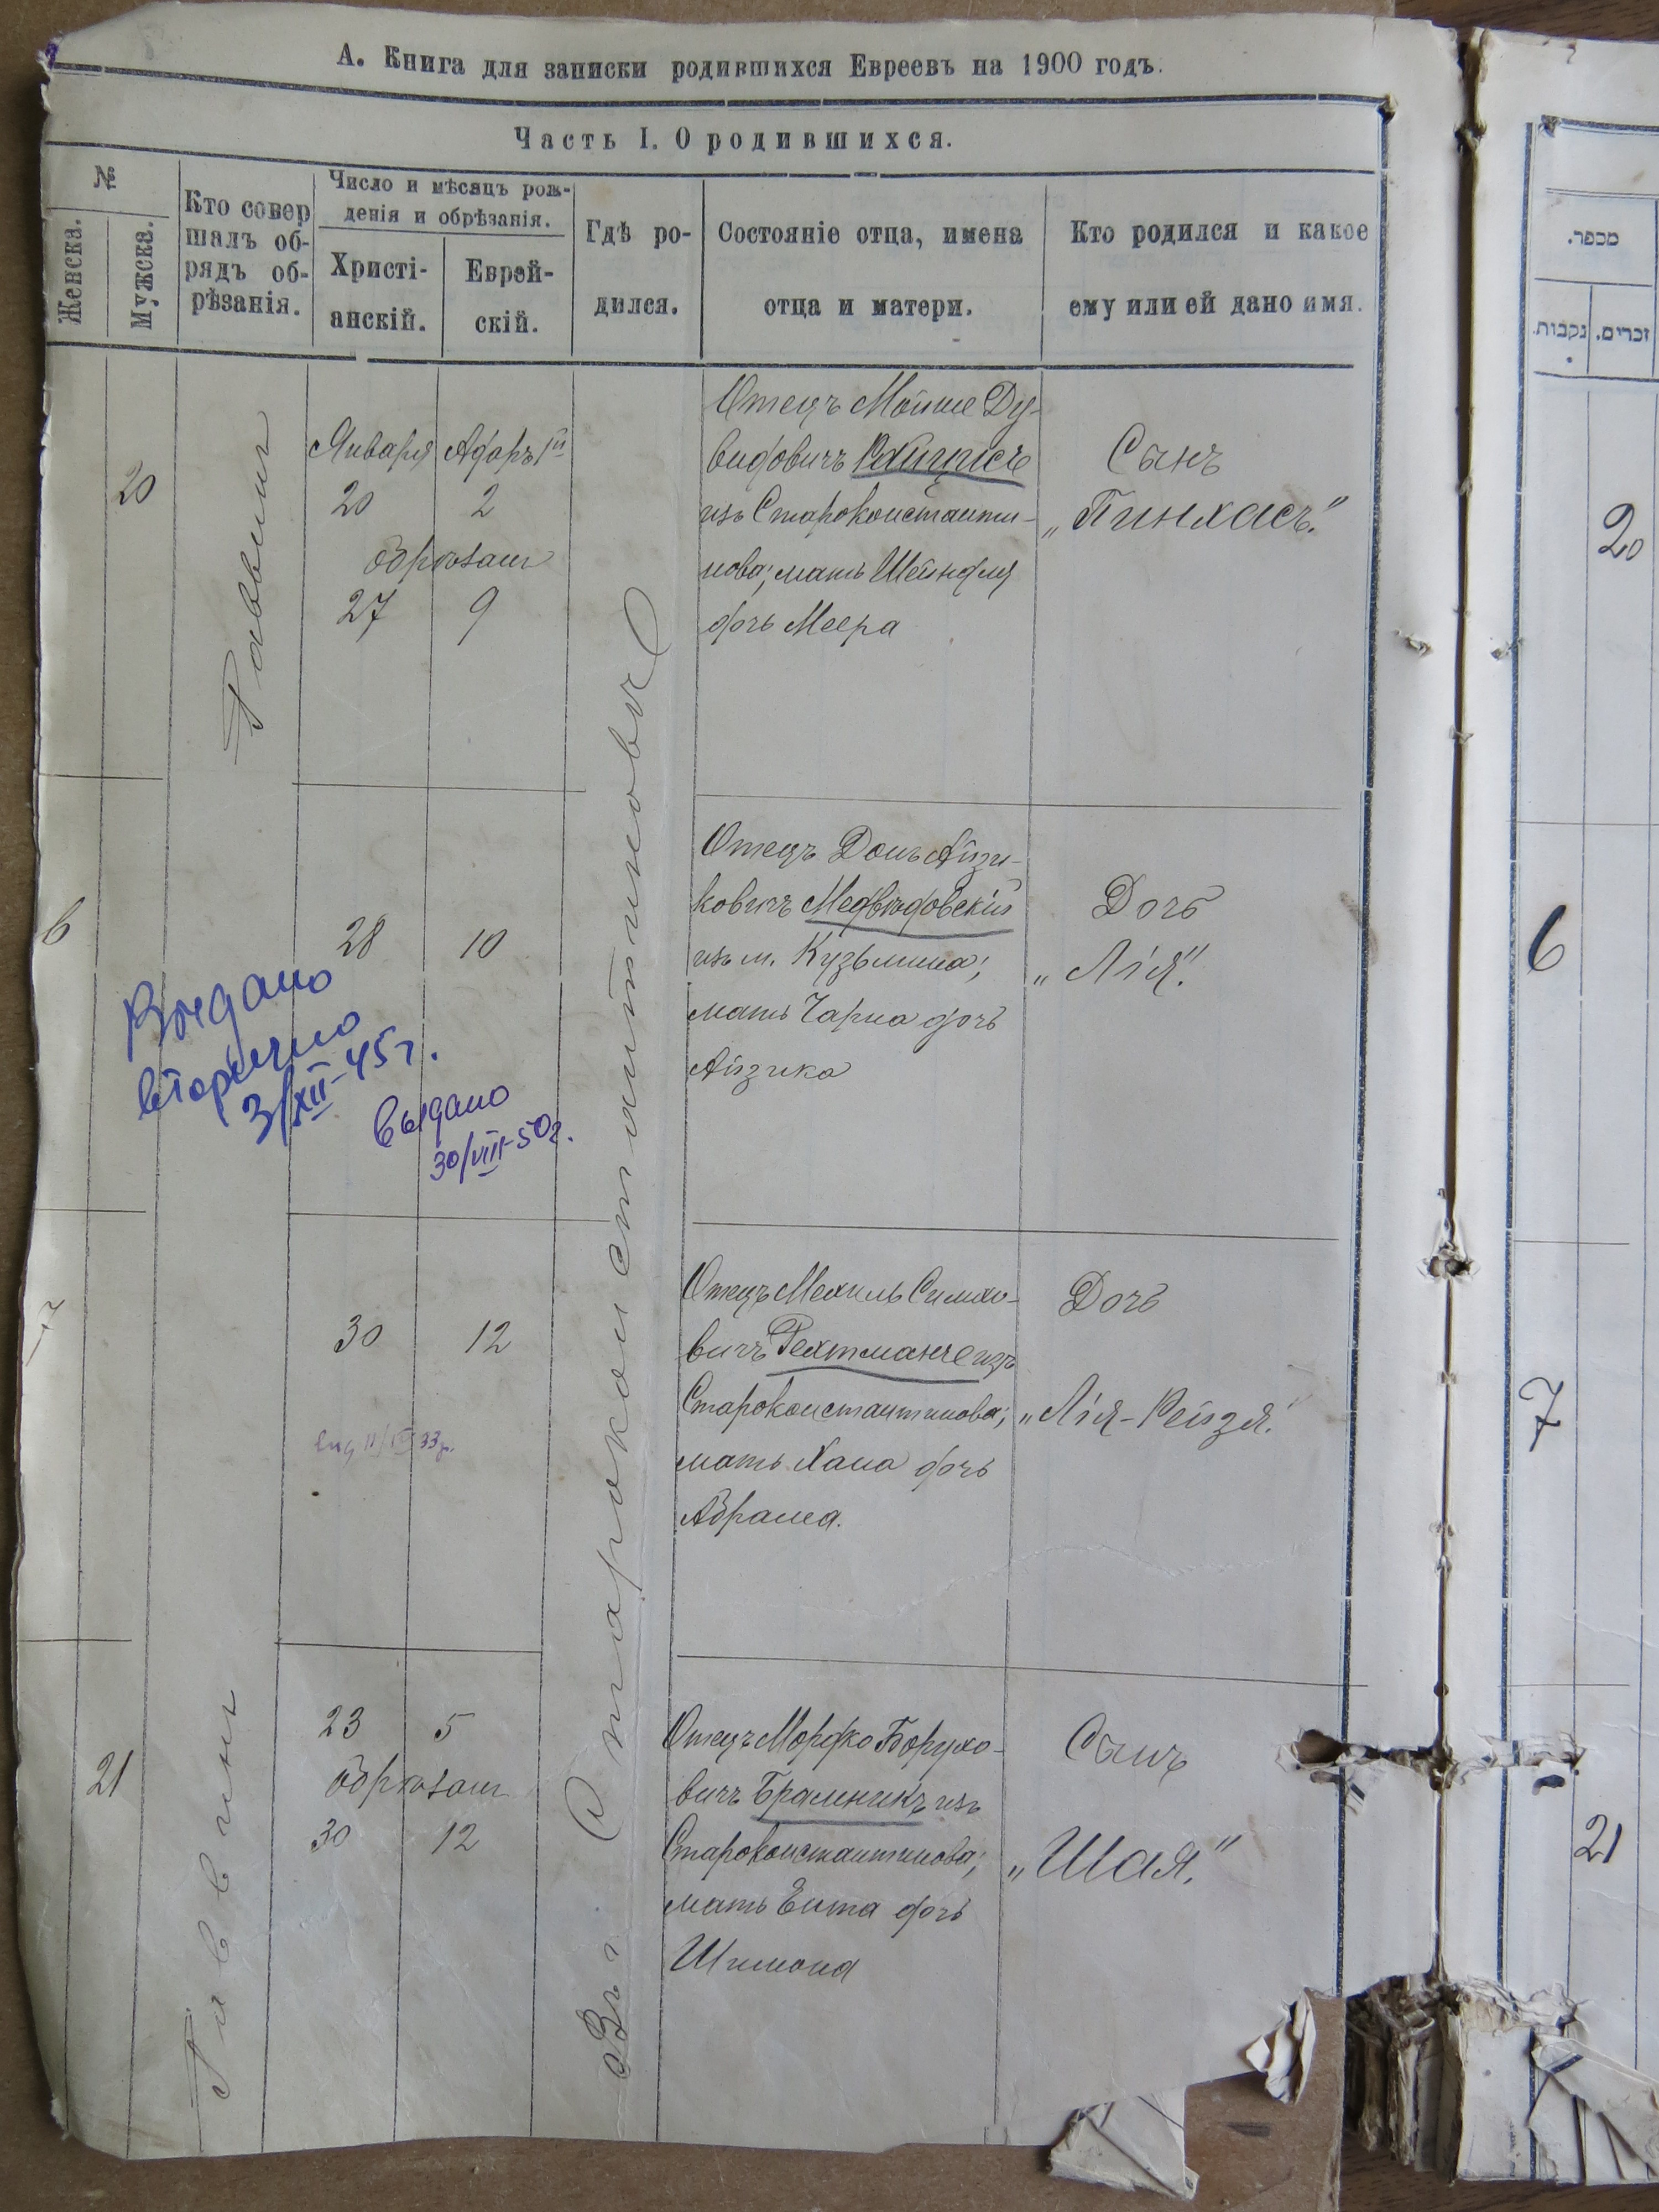 А. Книга для записки родившихся Евреевъ на 1900 годъ.
Часть I. О родившихся.
№
Женска.
Мужска.
Кто совер
шалъ об-
рядъ об-
рѣзанія.
Число и мѣсяцъ рож-
денія и обрѣзанія.
Христі-
анскій.
Еврей-
скій.
Гдѣ ро-
дился.
Состояніе отца, имена
отца и матери.
Кто родился и какое
ему или ей дано имя.
20
Раввинъ
Января
20
обрѣзанъ
27
Адаръ 1й
2
9
Въ г. Староконстантиновѣ
Отецъ Мойше Ду-
видовичъ
изъ Староконстанти-
нова; мать Шейндля
дочь Меера
Сынъ
„Пинхасъ."
6
28
10
Выдано
вторично
3/XII-45 г.
выдано
30/VIII-50 г.
Отецъ Донъ Айзи-
ковичъ Медвѣдовскій
изъ м. Кузьмина;
мать Чарна дочь
Айзика
Дочь
„Лія."
7
30
12
33 г.
Отецъ Мехиль Симхо-
вичъ Рехтманъ изъ
Староконстантинова;
мать Хана дочь
Абрама.
Дочь
„Лія-Рейзя."
21
Раввинъ
23
5
обрѣзанъ
30
12
Отецъ Мордко Борухо-
вичъ Брамникъ изъ
Староконстантинова;
мать Ента дочь
Шимона
Сынъ
„Шая."
מספר.
נקבות.
זכרים.
20
6
7
21